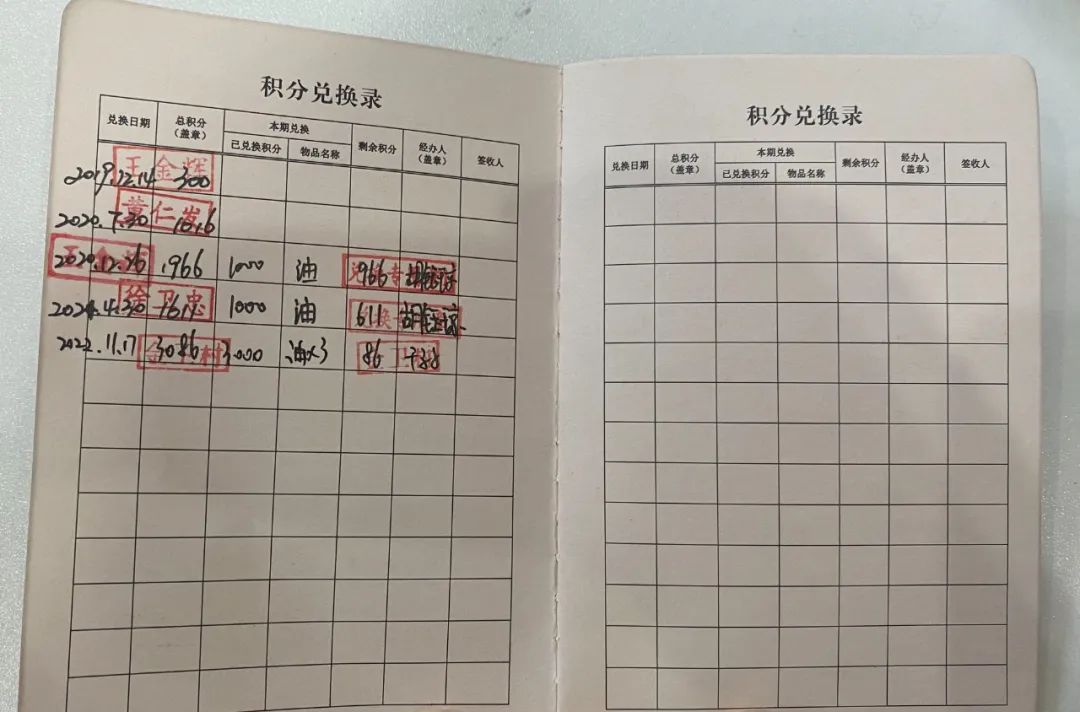 积分兑换录
兑换日期 总积分（盖章） 本期兑换 已兑换积分 物品名称 剩余积分 经办人（盖章） 签收人
王金辉
2019.12.14 300
黄仁发
2020.7.30
2020.12.26 1966 1000 油 966
徐卫忠
2021.4.30 1611 1000 油 611
2022.11.17 3086 3000 油x3 86
积分兑换录
兑换日期 总积分（盖章） 本期兑换 已兑换积分 物品名称 剩余积分 经办人（盖章） 签收人